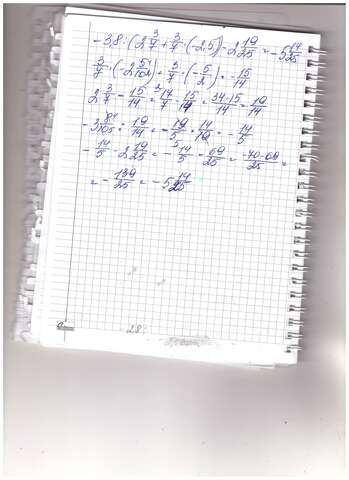 -3,8 : (2 3/7 + 3/7 · (-2,5)) - 2 19/25 = -5 14/25
3/7 · (-2 5/10) = 3/7 · (-5/2) = -15/14
2 3/7 - 15/14 = 17/7 - 15/14 = 34-15/14 = 19/14
-3 8/10 : 19/14 = -19/5 · 14/19 = -14/5
-14/5 - 2 19/25 = -14/5 - 69/25 = -70-69/25 =
= -139/25 = -5 14/25
28.